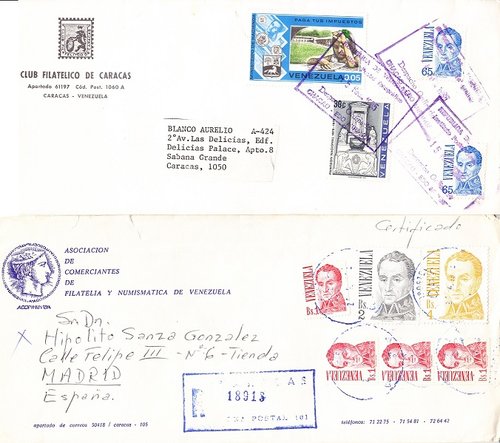 CLUB FILATELICO DE CARACAS
Apartado 61197 Cód. Post. 1060 A
CARACAS - VENEZUELA
PAGA TUS IMPUESTOS
VENEZUELA 0.05
VENEZUELA
65
VENEZUELA
VENEZUELA
65
BLANCO AURELIO A-424
2ªAv.Las Delicias, Edf.
Delicias Palace, Apto.8
Sabana Grande
Caracas, 1050
Certificado
ASOCIACION
DE
COMERCIANTES
DE
FILATELIA Y NUMISMATICA DE VENEZUELA
VENEZUELA
Bs.1
VENEZUELA
Bs 2
VENEZUELA
Bs 4
X
Sr. Dn.
Hipolito Sanza Gonzalez
Calle Felipe III - Nº 6 - Tienda
MADRID
España.
VENEZUELA Bs.1
VENEZUELA Bs.1
VENEZUELA Bs.1
18913
POSTAL 101
apartado de correos 50438 / caracas - 105
teléfonos: 71 22 75 - 71 54 81 - 72 64 42